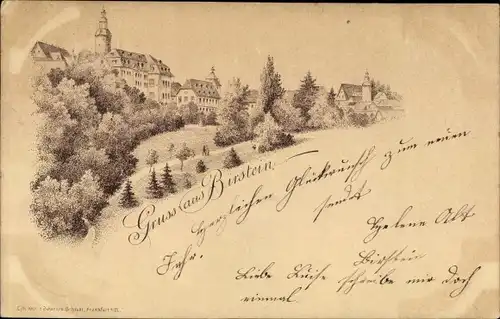 Gruss aus Birstein.
Herzlichen Glückwunsch zum neuen
Jahr. sendet
Helene Alt
Birstein
Liebe Luise schreibe mir doch
einmal
Frankfurt